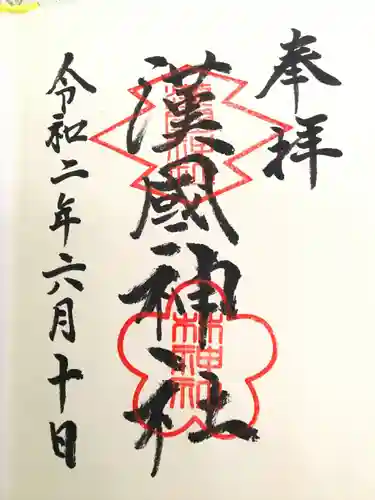 奉拝
漢國神社
林神社
令和二年六月十日